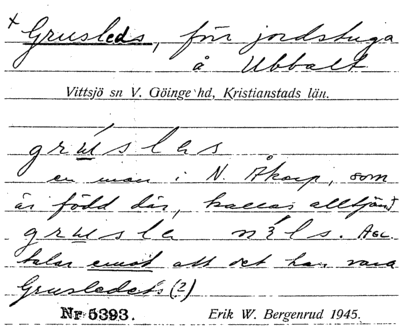 × Grusleds, förr jordstuga
å Ubbalt
Vittsjö sn V. Göinge hd, Kristianstads län.
grusles
en man i N. Åkarp, som
är född där, kallas alltjämt
grusle nels. Acc.
talar emot att det kan vara
Grusledet(?)
Nr 5393. Erik W. Bergenrud 1945.